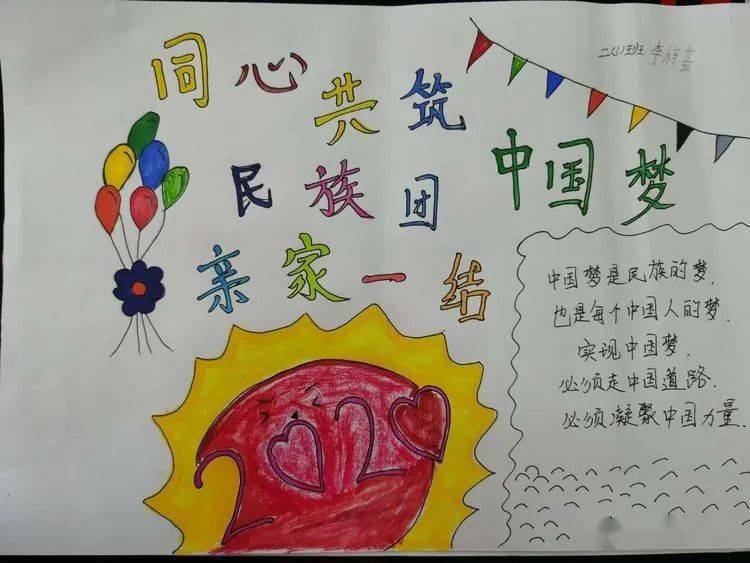 二(1)班 李梓
同心共筑
中国梦
民族团结
一家亲
2020
中国梦是民族的梦,
也是每个中国人的梦.
实现中国梦,
必须走中国道路.
必须凝聚中国力量.